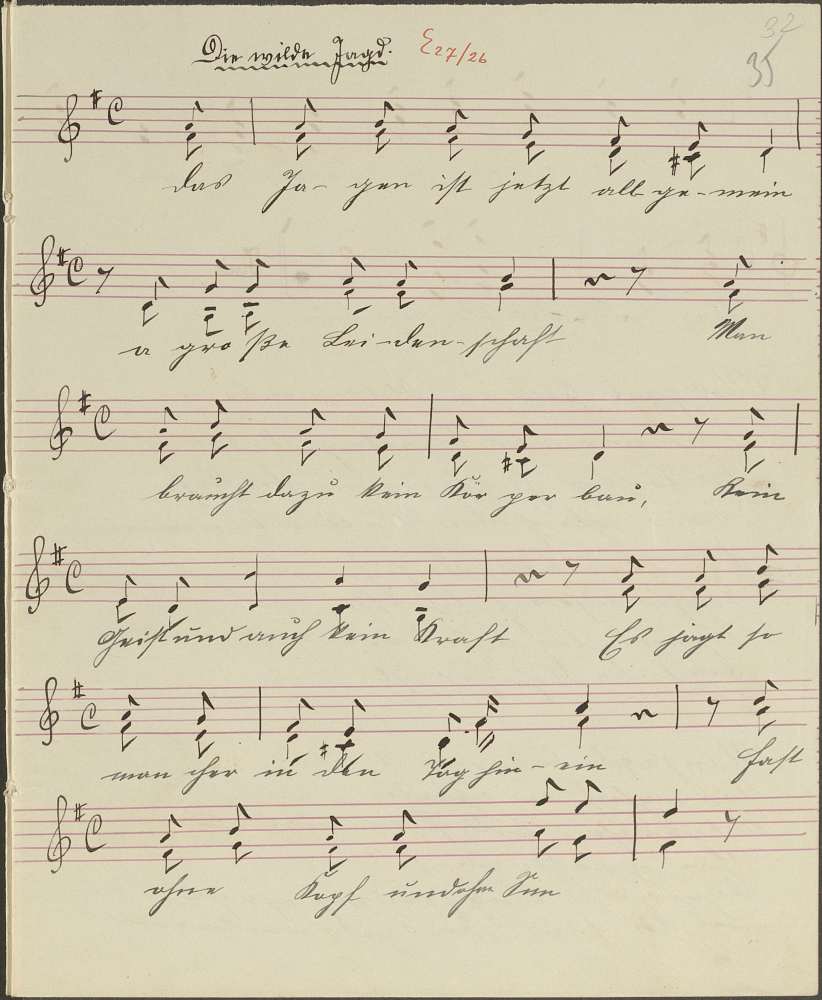 Die wilde Jagd. E27/26
32
35
das Ja- gen ist jetzt all ge- mein
a gro ße Lei-den-schaft Man
braucht dazu kein Kör per bau, Kein
Geist und auch kein Kraft Es jagt so
man cher in den Tag hin- ein fast
ohne Kopf und ohne Sinn